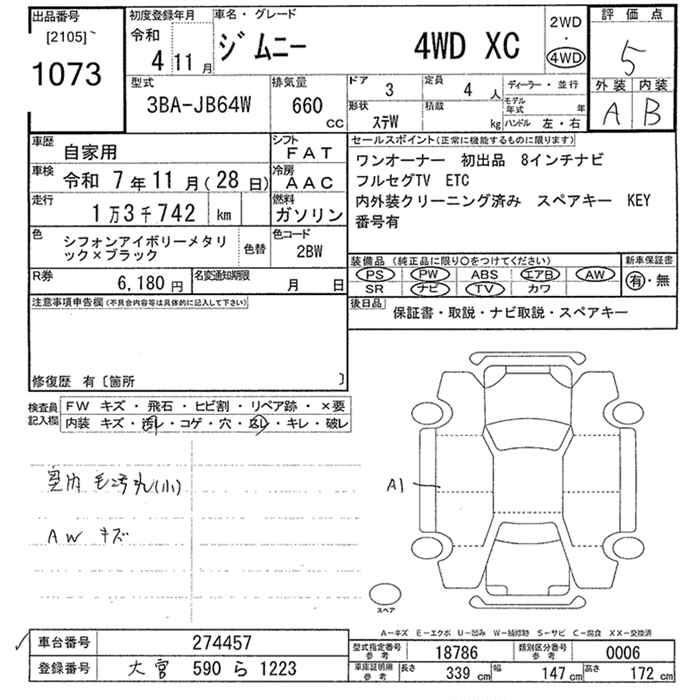 出品番号
[2105]~
1073
初度登録年月
令和
4 11月
車名・グレード
ジムニー 4WD XC
2WD
・
4WD
評価点
5
外装 内装
A B
型式
3BA-JB64W
排気量
660
CC
ドア
3
定員
4 人
ディーラー・並行
形状
ステW
積載
kg
モデル年式 年
ハンドル 左・右
車歴
自家用
シフト
FAT
車検
令和 7年11月(28日)
冷房
AAC
走行
1万3千742 km
燃料
ガソリン
色
シフォンアイボリーメタリ
ック×ブラック
色替
色コード
2BW
R券
6,180円
名変通知期限
月 日
セールスポイント(正常に機能するものに限ります)
ワンオーナー 初出品 8インチナビ
フルセグTV ETC
内外装クリーニング済み スペアキー KEY
番号有
装備品 (純正品に限り○をつけてください)
PS PW ABS エアB AW
SR ナビ TV カワ
新車保証書
有・無
後日品
保証書・取説・ナビ取説・スペアキー
注意事項申告欄(不具合内容等は具体的に記入して下さい)
修復歴 有〔箇所 〕
検査員
記入欄
FW キズ・飛石・ヒビ割・リペア跡・×要
内装 キズ・汚レ・コゲ・穴・スレ・キレ・破レ
室内
(小)
AW キズ
A1
スペア
A-キズ E-エクボ U-凹み W-補修跡 S-サビ C-腐食 XX-交換済
車台番号
274457
登録番号
大宮 590 ら 1223
型式指定番号
参考
18786
類別区分番号
参考
0006
車庫証明用
参考
長さ
339 cm
幅
147 cm
高さ
172 cm